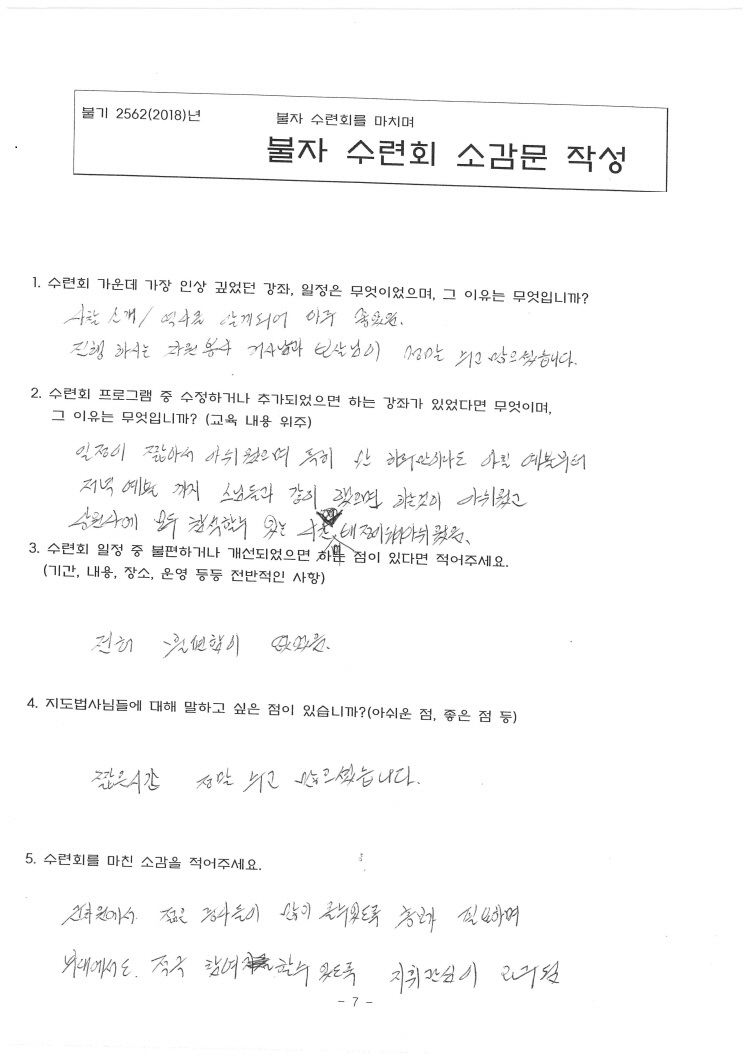 불기 2562(2018)년
불자 수련회를 마치며
불자 수련회 소감문 작성
1. 수련회 가운데 가장 인상 깊었던 강좌, 일정은 무엇이었으며, 그 이유는 무엇입니까?
사찰 소개/ 역사를 알게되어 아주 좋았음.
진행 하시는 자원 봉사 거사님과 보살님이 정말 수고 많으셨습니다.
2. 수련회 프로그램 중 수정하거나 추가되었으면 하는 강좌가 있었다면 무엇이며,
그 이유는 무엇입니까? (교육 내용 위주)
일정이 짧아서 아쉬웠으며 특히 단 하루만이라도 아침 예불부터
저녁 예불 까지 스님들과 같이 했으면 하는것이 아쉬웠고
모두 참석할수 있는 아쉬웠음.
3. 수련회 일정 중 불편하거나 개선되었으면 하는 점이 있다면 적어주세요.
(기간, 내용, 장소, 운영 등등 전반적인 사항)
전혀 불편함이 없었음.
4. 지도법사님들에 대해 말하고 싶은 점이 있습니까?(아쉬운 점, 좋은 점 등)
짧은시간 정말 수고 많으셨습니다.
5. 수련회를 마친 소감을 적어주세요.
젊은 많이 올수있도록 홍보가 필요하며
부대에서도 적극 참여 할수 있도록 지휘관심이 요구됨
- 7 -